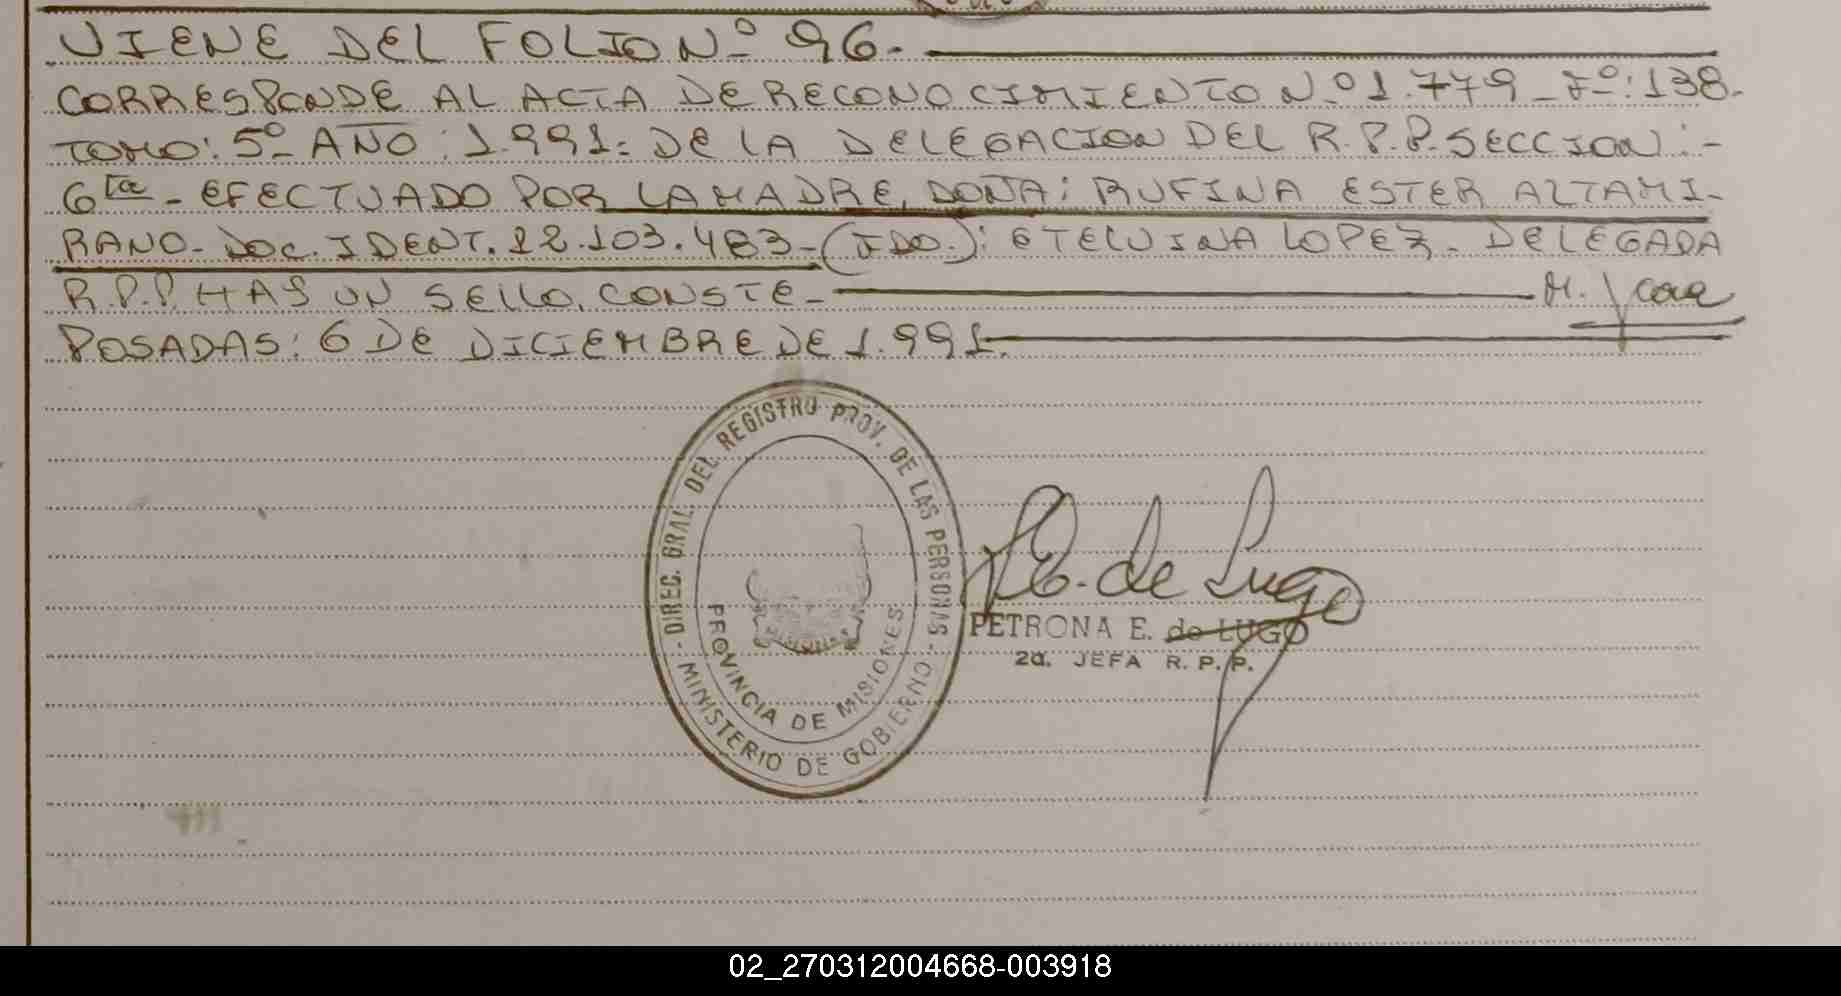 VIENE DEL FOLIO Nº 96.
CORRESPONDE AL ACTA DE RECONOCIMIENTO Nº 1.779 - Fº: 138.
TOMO: 5º- AÑO: 1.991. DE LA DELEGACION DEL R.P.P. SECCION: -
6ta - EFECTUADO POR LA MADRE, DOÑA: RUFINA ESTER ALTAMI-
RANO - DOC. IDENT. 12.103.483 - (FDO.): ETELVINA LOPEZ - DELEGADA
R.P.P. HAS UN SELLO. CONSTE -
POSADAS: 6 DE DICIEMBRE DE 1.991.
- DIREC. GRAL. DEL REGISTRO PROV. DE LAS PERSONAS -
MINISTERIO DE GOBIERNO
PROVINCIA DE MISIONES
de Lugo
PETRONA E. de LUGO
2a. JEFA R. P. P.
02_270312004668-003918